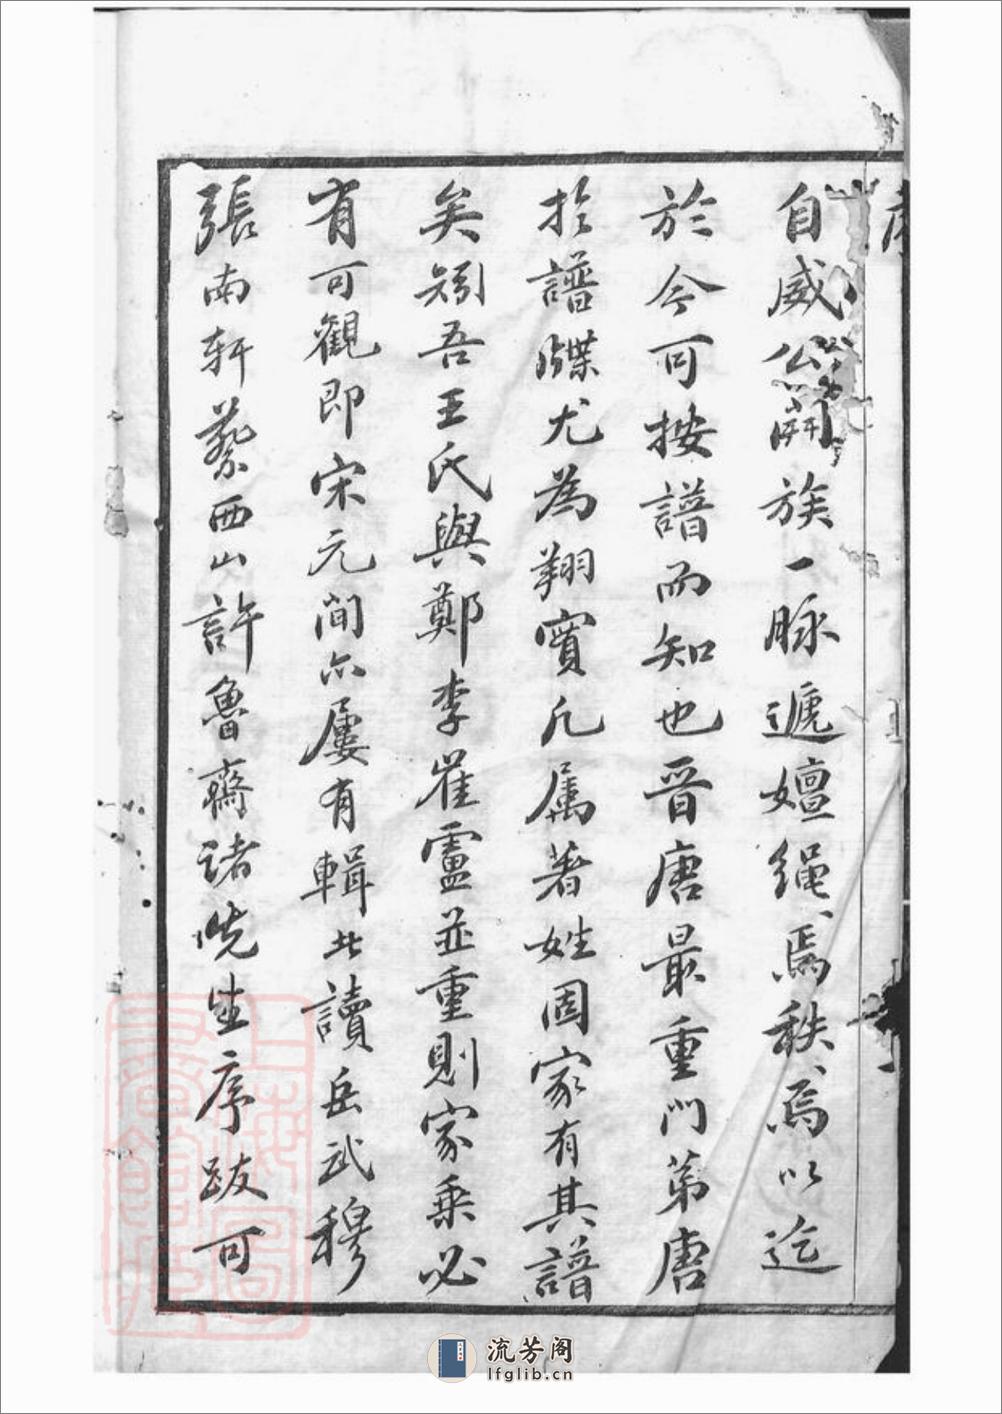 自威公開族一脉遞嬗繩、焉秩、焉以迄
於今可按譜而知也晉唐最重門第唐
於譜牒尤為翔實凡属著姓固家有其譜
矣矧吾王氏與鄭李崔盧並重則家乘必
有可觀即宋元間亦屢有輯此讀岳武穆
張南軒蔡西山許魯齋諸先生序跋可
流芳阁
lfglib.cn